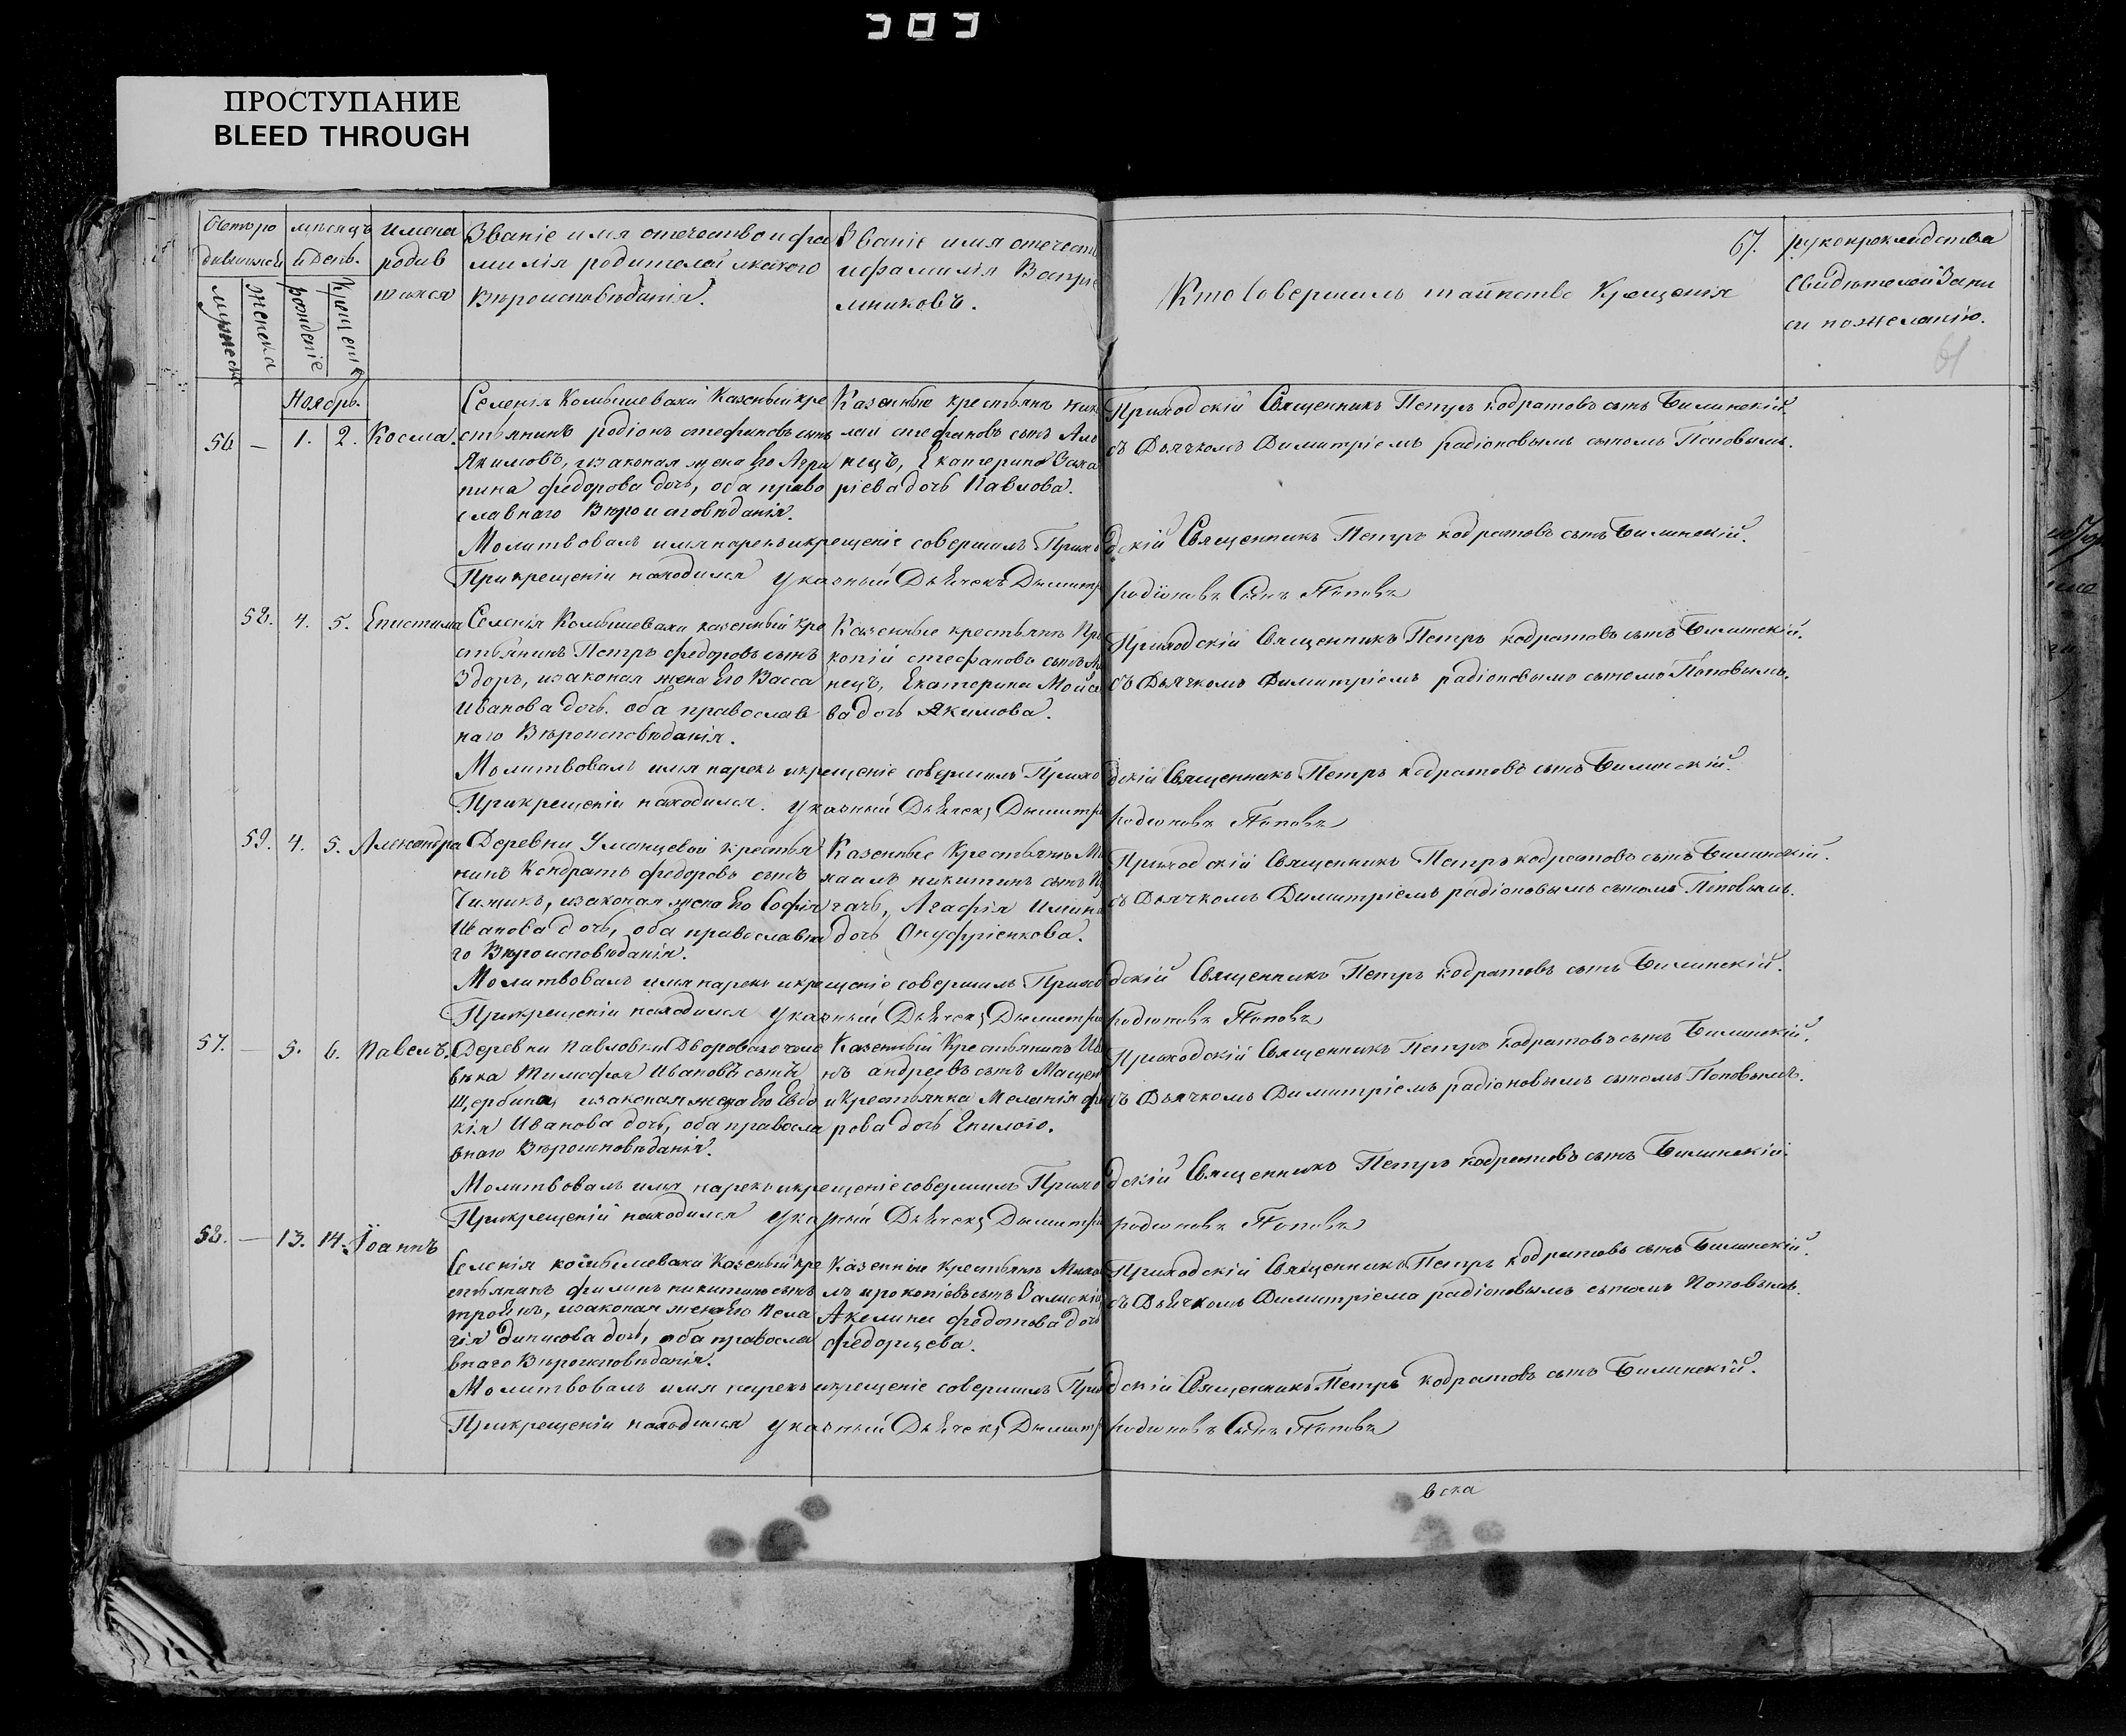 303
ПРОСТУПАНИЕ
BLEED THROUGH
месяцъ
и День.
мужеска
женска
рожденіе
Крещенія
имена
родив
шихся
Званіе имя отечество и фа
милія родителей и какого
Вѣроисповѣданія.
Званіе имя отечеств
и фамилія Воспріе
мниковъ.
67.
Кто Совершилъ таинство Крещенія
рукоприкладства
Свидѣтелей Запи
си по желанію.
61
Ноябрь.
56 — 1. 2. Косма.
Селенія Комышевахи Казеный кре
стьянинъ родіонъ стефановъ сынъ
Якимовъ, и законая жена Его Агри
пина федорова дочь, оба право
славнаго
Казенные крестьянъ Ник
лай стефановъ сынъ
нецъ, Екатерина Заха
ріева дочь Павлова.
Приходскій Священникъ Петръ кодратовъ сынъ Билинскій.
съ Дьячкомъ Димитріемъ радіоновымъ сыномъ Поповымъ.
Молитвовалъ имя нарекъ и крещеніе совершилъ Приходскій Священникъ Петръ кодратовъ сынъ Билинскій.
При крещеніи находился указный Дьячекъ Дымитр родіоновъ Сынъ Поповъ
58. 4. 5. Епистима
Селенія Комышевахи казенный кре
стьянинъ Петръ федоровъ сынъ
Здоръ, и законая жена Его Васса
Иванова дочь. оба православ
наго Вѣроисповѣданія.
Казенные крестьянъ Про
копій стефановъ сынъ
нецъ, Екатерина Мойсе
ва дочь Якимова.
Приходскій Священникъ Петръ кодратовъ сынъ Билинскій.
съ Дьячкомъ Димитріемъ радіоновымъ сыномъ Поповымъ.
Молитвовалъ имя нарекъ и крещеніе совершилъ Приходскій Священникъ Петръ кодратовъ сынъ Билинскій.
При крещеніи находился. указный Дьячекъ Дымитри родионовъ Поповъ
59. 4. 5. Александра
Деревни Уманцевой крестья
нинъ Кондратъ федоровъ сынъ
Чищикъ, и законая жена Его Софія
Иванова дочь, оба православна
го Вѣроисповѣданія.
Казенные Крестьянъ Ми
хаилъ никитинъ сынъ
гачъ, Агафія
дочь Онуфріенкова.
Приходскій Священникъ Петръ кодратовъ сынъ Билинскій.
съ Дьячкомъ Димитріемъ радіоновымъ сыномъ Поповымъ.
Молитвовалъ имя нарекъ и крещеніе совершилъ Приходскій Священникъ Петръ кодратовъ сынъ Билинскій.
При крещеніи находился указный Дьячекъ Дымитри родионовъ Поповъ
57. — 5. 6. Павелъ.
Деревни Павловки Дворового чело
вѣка Тимофея Иванова сына
Щербина, и законая жена Его Евдо
кія Иванова дочь, оба правосла
внаго Вѣроисповѣданія.
Казенный Крестьянинъ Ив
нъ андреевъ сынъ Мащен
и Крестьянка Меланія фе
рова дочь
Приходскій Священникъ Петръ кодратовъ сынъ Билинскій.
съ Дьячкомъ Димитріемъ радіоновымъ сыномъ Поповымъ.
Молитвовалъ имя нарекъ и крещеніе совершилъ Приходскій Священникъ Петръ кодратовъ сынъ Билинскій.
При крещеній находился указный Дьячекъ Дымитри родионовъ Поповъ
58. — 13. 14. Іоаннъ
Селенія комышевахи Казеный кре
стьянинъ филипъ никитинъ сынъ
и законая жена Его Пела
гія Динисова дочь, оба правосла
внаго Вѣроисповѣданія.
Казенніи Крестьянъ Миха
лъ прокопіевъ сынъ
Акелина федотова дочь
федорцева.
Приходскій Священникъ Петръ кодратовъ сынъ Билинскій.
съ Дьячкомъ Димитріемъ радіоновымъ сыномъ Поповымъ.
Молитвовалъ имя нарекъ и крещеніе совершилъ Приходскій Священникъ Петръ кодратовъ сынъ Билинскій.
При крещеніи находился указный Дьячекъ Дымитр родионовъ Сынъ Поповъ